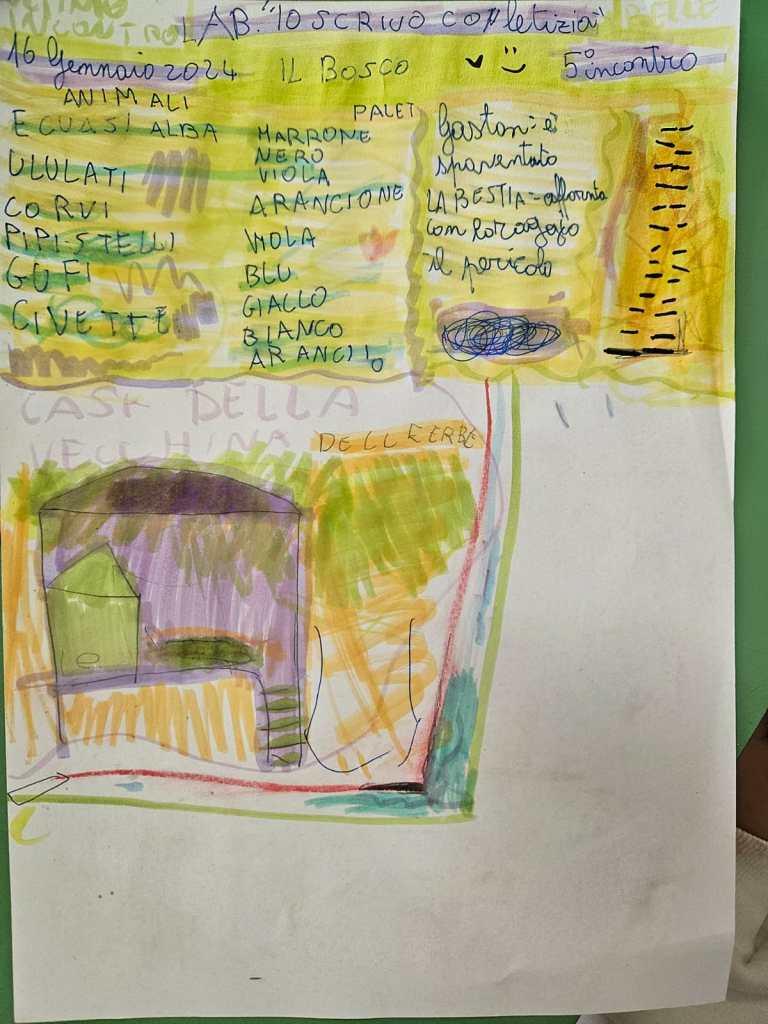 LAB. "IO SCRIVO CON letizia"
16 Gennaio 2024 IL BOSCO 5° incontro
ANIMALI
E CUASI ALBA
ULULATI
CORVI
PIPI-STELLI
GUFI
CIVETTE
PALET
MARRONE
NERO
VIOLA
ARANCIONE
VIOLA
BLU
GIALLO
BIANCO
ARANCIIO
Gaston: è
spaventato
LA BESTIA = affornta
con coragGio
il pericolo
CASA DELLA
VECCHINA DELLE ERBE